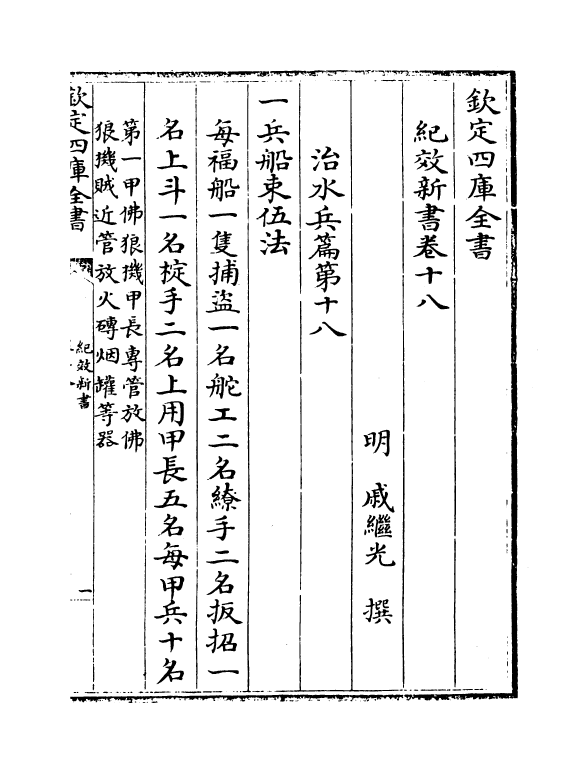 欽定四庫全書
紀效新書卷十八
明 戚繼光 撰
治水兵篇第十八
一兵船束伍法
每福船一隻捕盜一名舵工二名繚手二名扳招一
名上斗一名椗手二名上用甲長五名每甲兵十名
第一甲佛狼機甲長專管放佛
狼機賊近管放火磚烟罐等器
欽定四庫全書
紀效新書
一